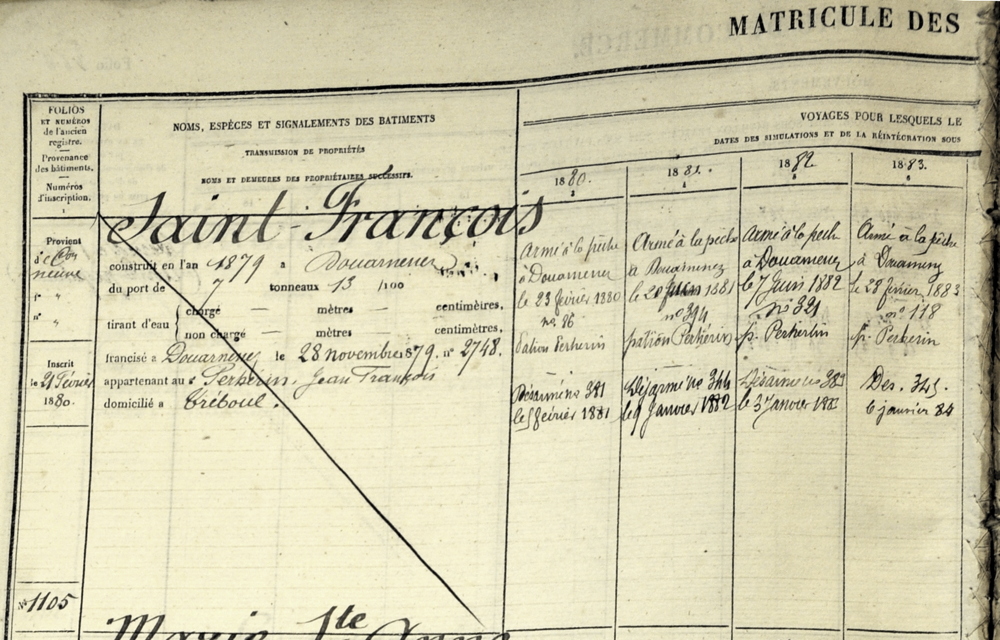 MATRICULE DES
FOLIOS
ET NUMÉROS
de l'ancien
registre.
Provenance
des bâtiments.
Numéros
d'inscription.
1
NOMS, ESPÈCES ET SIGNALEMENTS DES BATIMENTS
TRANSMISSION DE PROPRIÉTÉS
NOMS ET DEMEURES DES PROPRIÉTAIRES SUCCESSIFS.
VOYAGES POUR LESQUELS LE
DATES DES SIMULATIONS ET DE LA RÉINTÉGRATION SOUS
1880.
1881.
1882.
1883.
Saint-François
Provient
neuve
construit en l'an 1879 à Douarnenez
du port de 7 tonneaux 13 /100
tirant d'eau { chargé — mètres — centimètres,
non chargé — mètres — centimètres,
francisé à Douarnenez le 28 novembre 1879. n° 2748.
appartenant au s. Perherin. Jean François
domicilié à Tréboul.
Inscrit
le 21 Février
1880.
Armé à la pêche
à Douarnenez
le 23 février 1880
n° 86
Patron Perherin
Désarmé n° 381
le 5 février 1881
Armé à la pêche
à Douarnenez
le 1881
n° 394
patron Perherin
Désarmé n° 344
le 9 Janvier 1882
Armé à la pêche
à Douarnenez
le 7 Juin 1882
n° 321
p. Perherin
Désarmé n° 383
le 3 Janvier 1883
Armé à la pêche
à Douarnenez
le 28 février 1883
n° 118
p. Perherin
Des. 345.
6 janvier 84
N° 1105
Marie Ste Anne